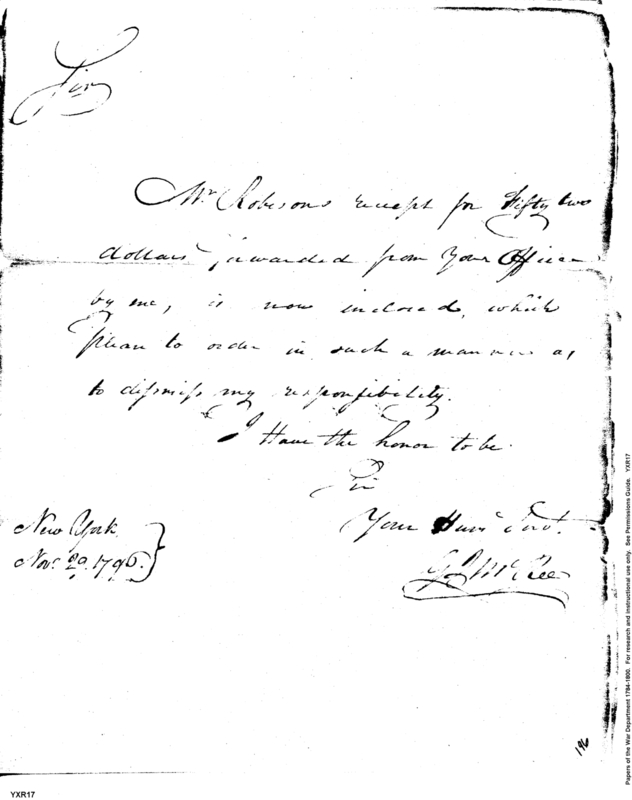 Sir
Mr. Robisons receept for Fifty two
dollars forwarded from Your Office
by me, is now inclosed, which
please to order in such a manner as
to dissmiss my responsibility.
I Have the honor to be
Sir
Your Hum Servt.
New York
Nov. 1796.
196
YXR17
Papers of the War Department 1784-1800. For research and instructional use only. See Permissions Guide. YXR17